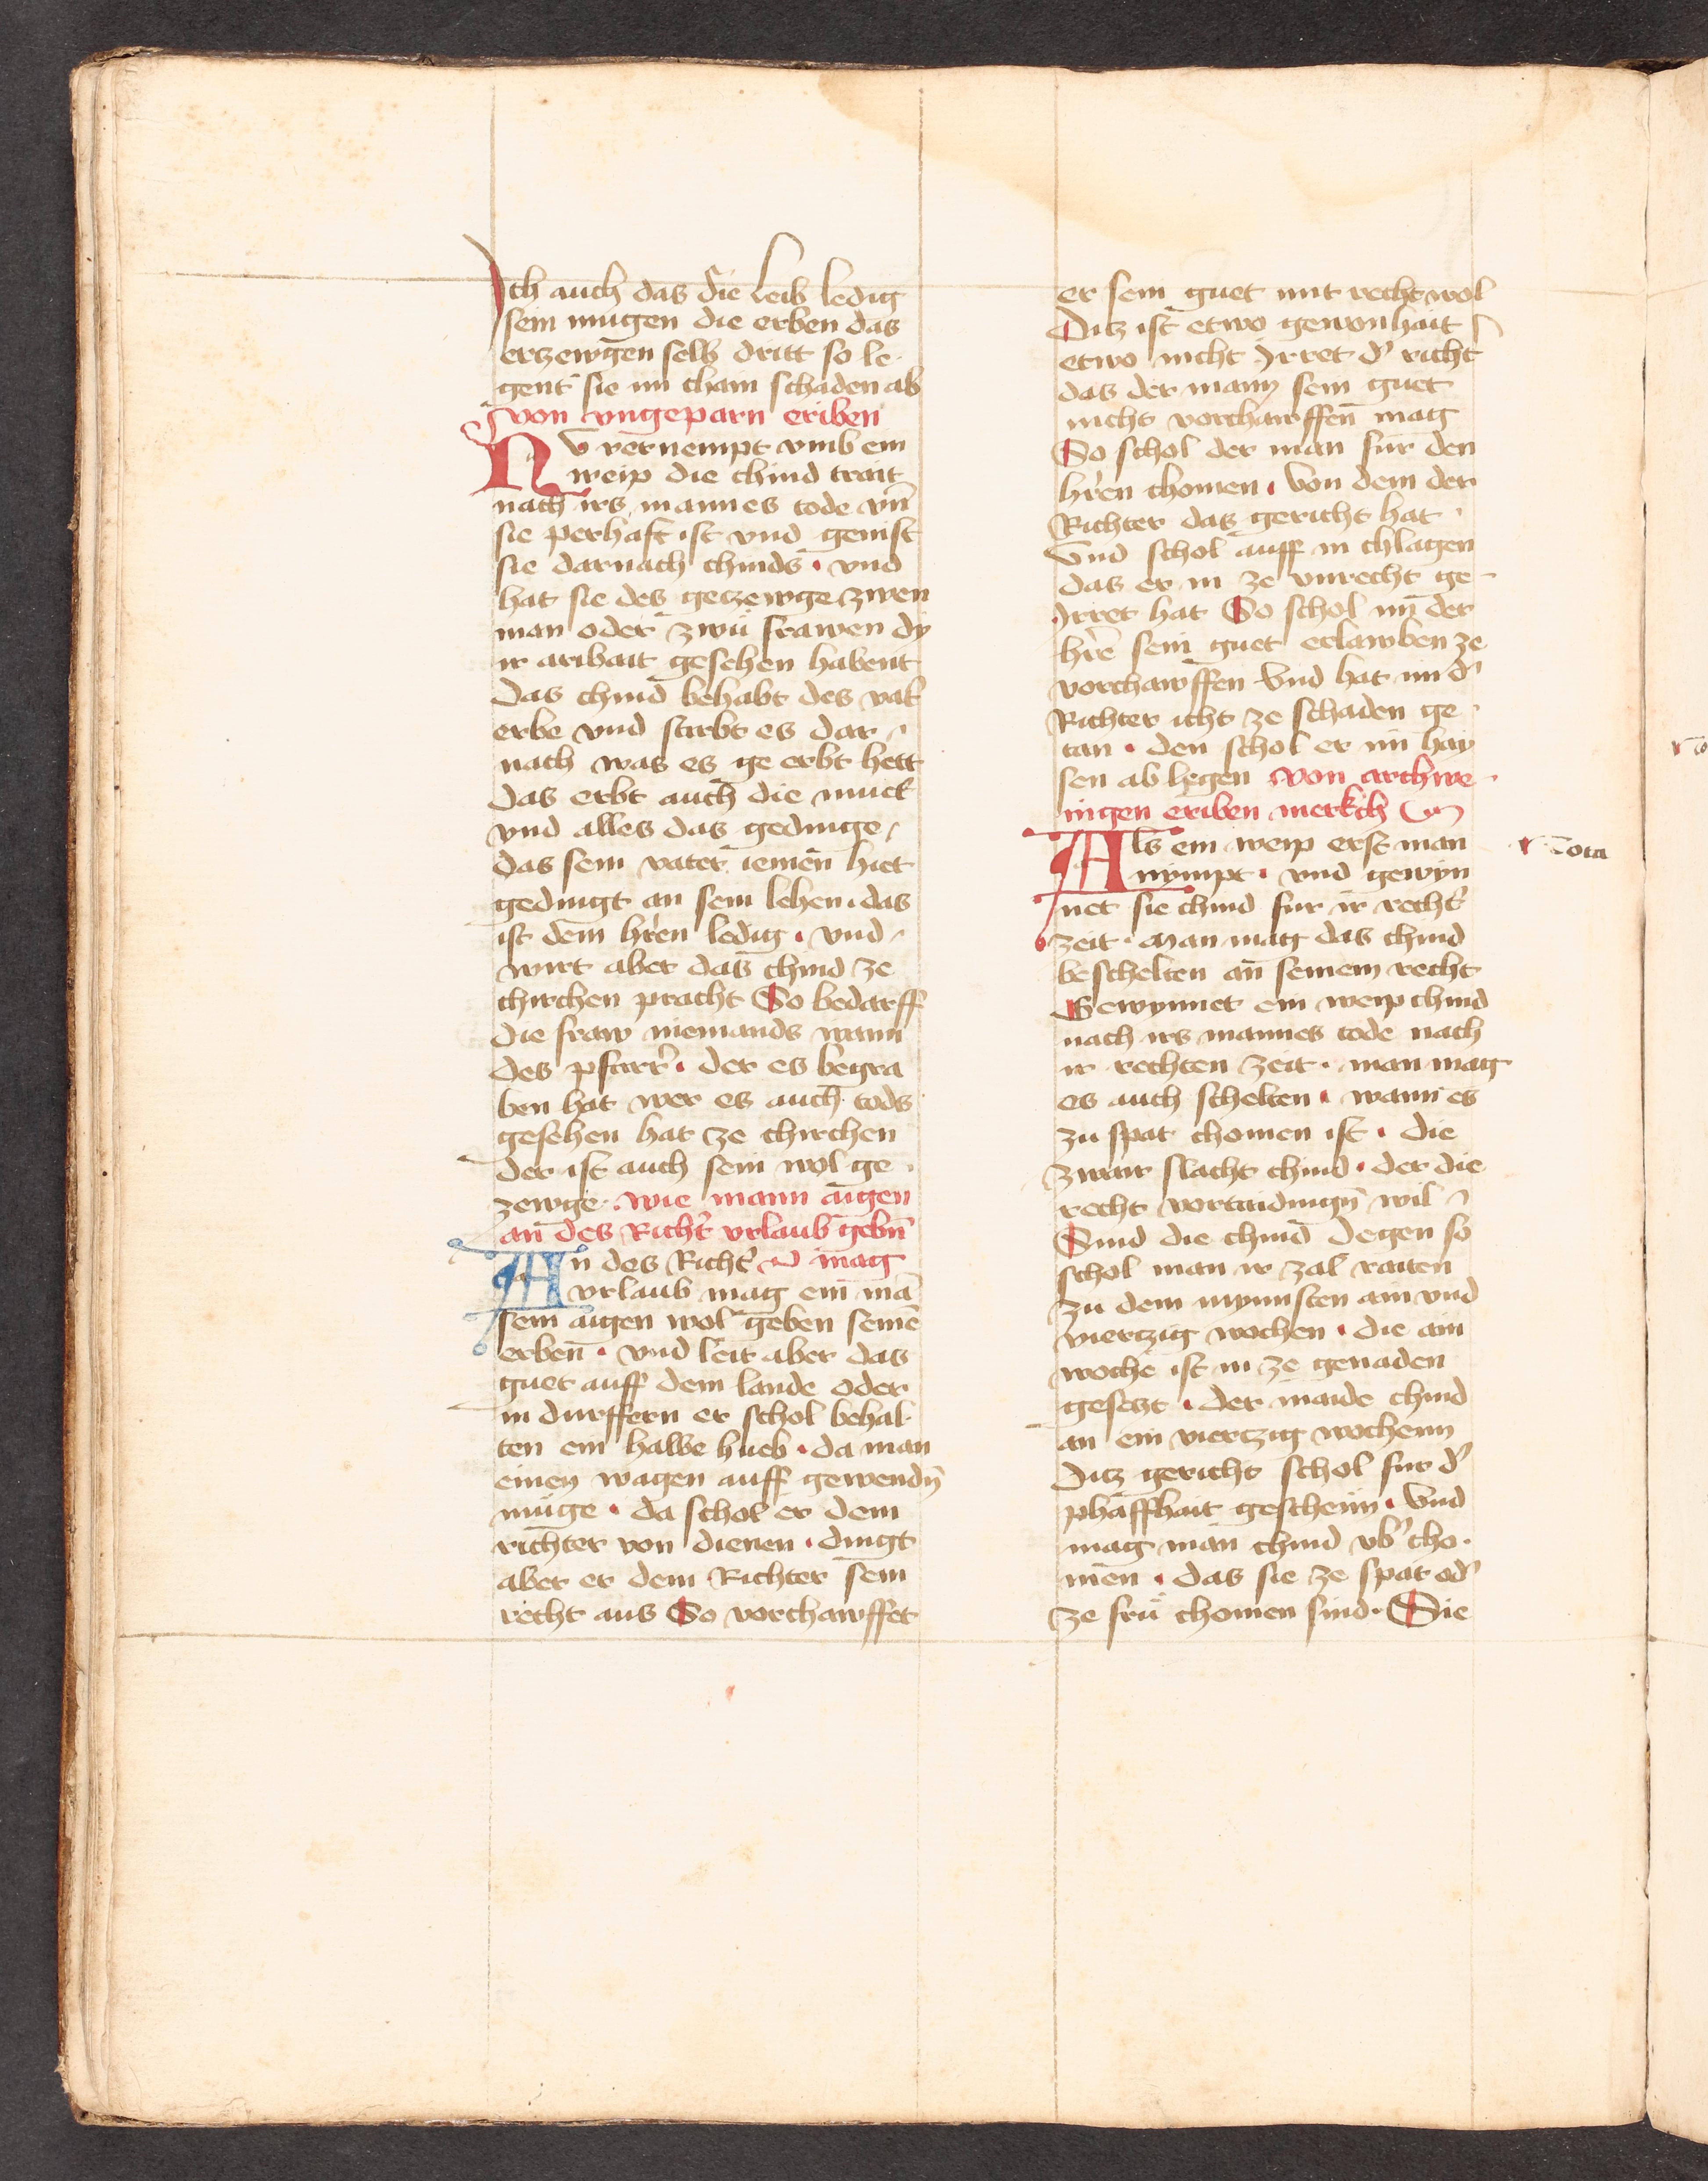 Ich auch das die Leib ledig
sein mugen die erben das
erzewgen selb dritt so le
gent sie im chain schaden ab
von vngeparn eriben
Nv vernempt vmb ein
weip die chind trait
nach irs mannes tode vn̄
sie perhaft ist vnd genist
sie darnach chinds · vnd
hat sie des geczewge zwen
man oder zwu frawen dy
ir aribait gesehen habent
das chind behabt des vat̓
erbe vnd stirbt es dar
nach was es ge erbt hett
das erbt auch die mut̓
vnd alles das gedinge
das sein vater iemen hiet
gedingt an sein lehen · das
ist dem hr̓en ledig · vnd
wirt aber das chind ze
chirchen pracht So bedarff
die fraw niemands wann
des pfarr̓ · der es begra
ben hat wer es auch tods
gesehen hat ze chirchen
der ist auch sein wol ge
zewge · wie mann aigen
an des Richt̓ vrlaub gebn̄
An des Richt̓ mag
vrlaub mag ein mā
sein aigen wol geben seinē
erben · vnd leit aber das
guet auff dem lande oder
in durffern er schol behal
ten ein halbe hueb · da man
einen wagen auff gewendn̄
muge · da schol er dem
richter von dienen · dingt
aber er dem Richter sein
recht aus So vorchawffet
er sein guet mit recht wol
Ditz ist etwo gewonhait
etwo nicht Irret d̓ richt
das der mann sein guet
nicht vorchawffen mag
So schol der man fur den
hr̓en chomen · von dem der
Richter das gericht hat ·
Vnd schol auff in chlagen
das er in ze vnrecht ge
Irret hat So schol im der
hr̓e sein guet erlawben ze
vorchawffen Vnd hat im d̓
Richter icht ze schaden ge
tan · den schol er im hay
sen ab legen von archwe
nigen eriben merkch
Als ein weip erst man
nympt · vnd gewyn
net sie chind fur ir recht̓
zeit · man mag das chind
beschelten an seinem recht
Gewynnet ein weip chind
nach irs mannes tode nach
ir rechten zeit · man mag
es auch schelten · wann es
zu spat chomen ist · die
zwair slacht chind · der die
recht vortaidingn̄ wil
Sind die chind degen so
schol man ir zal raiten
zu dem mynnsten ain vnd
viertzig wochen · die ain
woche ist in ze genaden
gesetzt · der maide chind
an ein viertzig wochenn
Ditz gericht schol fur d̓
phaffhait geschehn · Vnd
mag man chind vb̓ cho
men · das sie ze spat od̓
ze fru chomen sind · Die
Nota